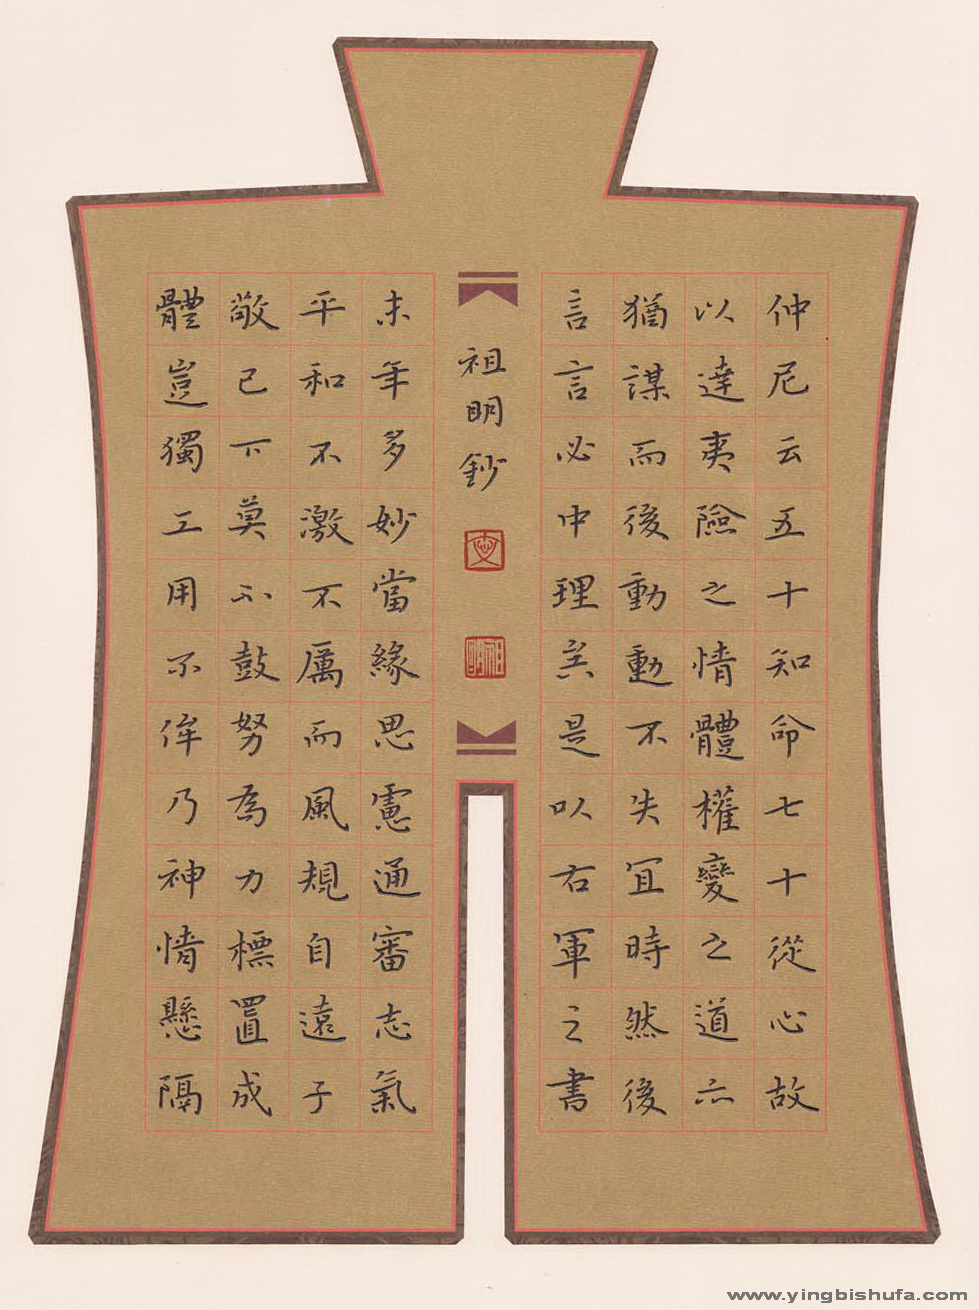 仲尼云五十知命七十從心故
以達夷險之情體權變之道亦
猶謀而後動動不失宜時然後
言言必中理矣是以右軍之書
祖明鈔
末年多妙當緣思慮通審志氣
平和不激不厲而風規自遠子
敬已下莫不鼓努為力標置成
體豈獨工用不侔乃神情懸隔
www.yingbishufa.com